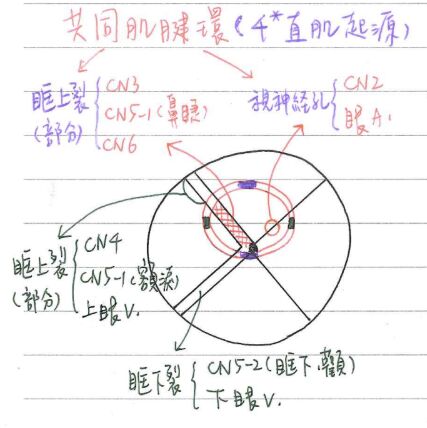 共同肌腱環(4*直肌起源)
眶上裂(部分)
CN3
CN5-1(鼻睫)
CN6
視神経孔
CN2
眼A.
眶上裂(部分)
CN4
CN5-1(額淚)
上眼V.
眶下裂
CN5-2(眶下.顴)
下眼V.